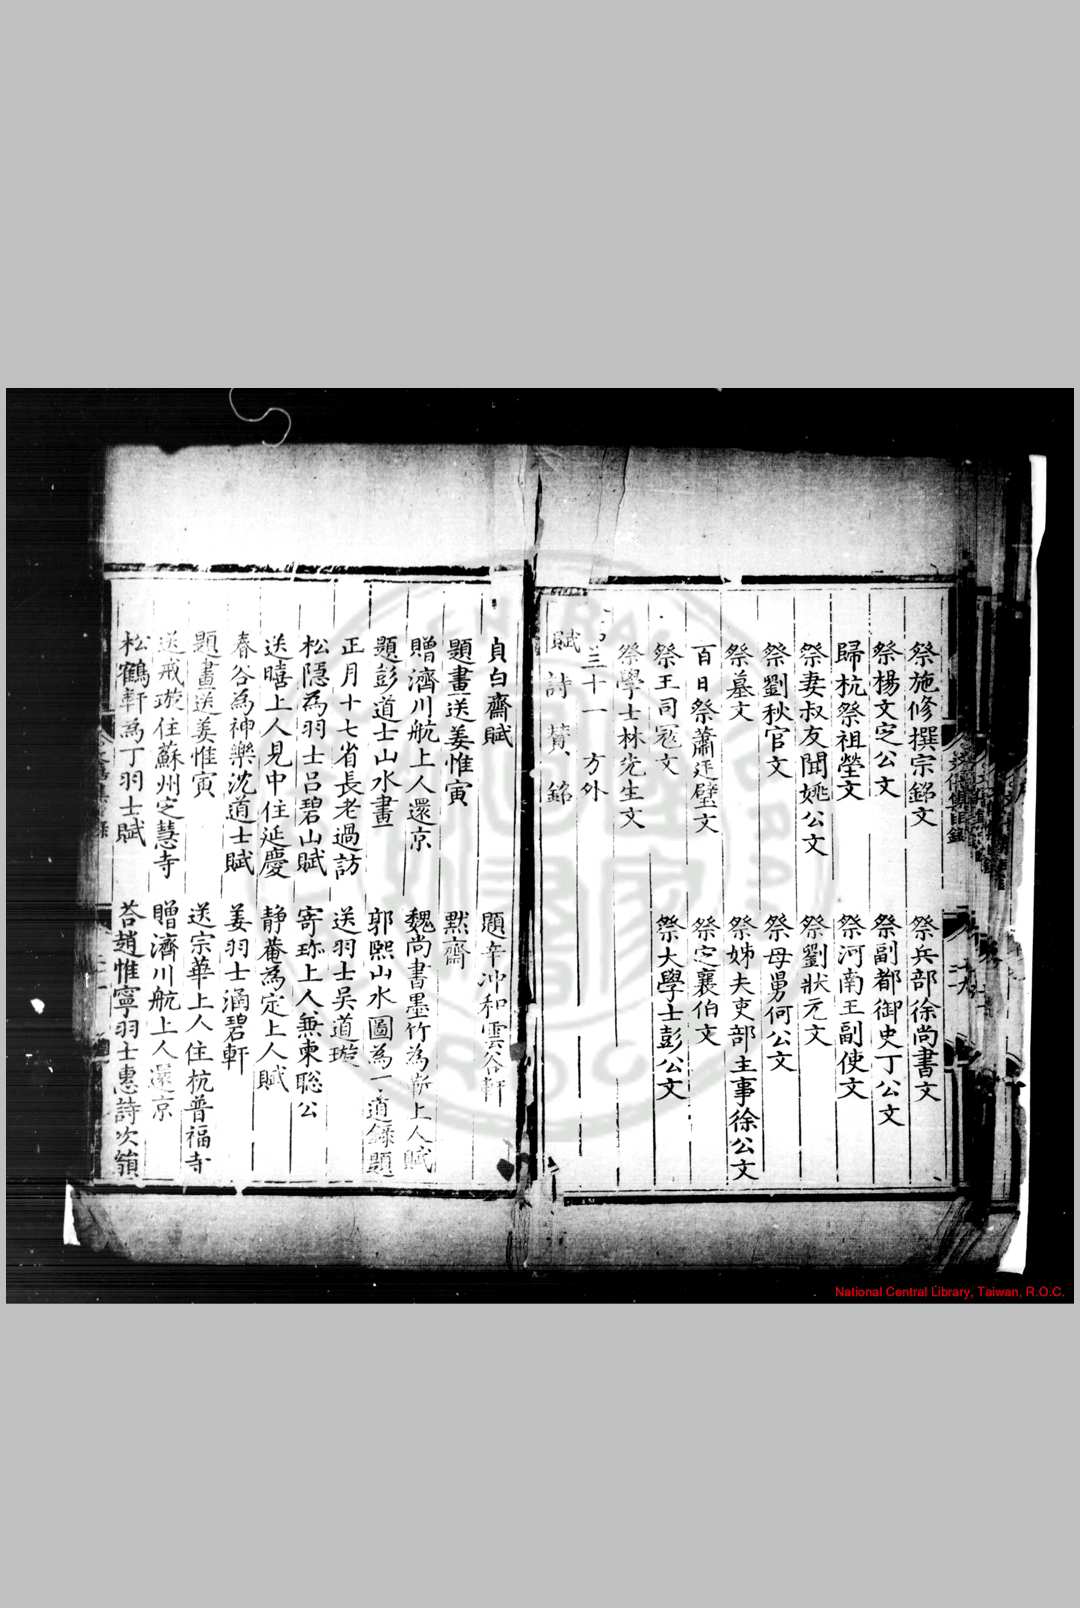 祭施修撰宗銘文　祭兵部徐尚書文
祭楊文定公文　祭副都御史丁公文
歸杭祭祖塋文　祭河南王副使文
祭妻叔友聞姚公文　祭劉狀元文
祭劉秋官文　祭母舅何公文
祭墓文　祭姊夫吏部主事徐公文
百日祭蕭廷璧文　祭定襄伯文
祭王司寇文　祭大學士彭公文
祭學士林先生文
三十一　方外
賦　詩　賛　銘
貞白齋賦　題辛冲和雲谷軒
題畫送姜惟寅　默齋
贈濟川航上人還京　魏尚書墨竹為上人賦
題彭道士山水畫　郭熙山水圖為一道錄題
正月十七省長老過訪　送羽士吳道璇
松隱為羽士呂碧山賦　寄珎上人兼柬聡公
送曦上人見中住延慶　靜菴為定上人賦
春谷為神樂沈道士賦　姜羽士涵碧軒
題畫送姜惟寅　送宗華上人住杭普福寺
送戒璇住蘇州定慧寺　贈濟川航上人還京
松鶴軒為丁羽士賦　荅趙惟寧羽士惠詩次韻
National Central Library, Taiwan, R.O.C.